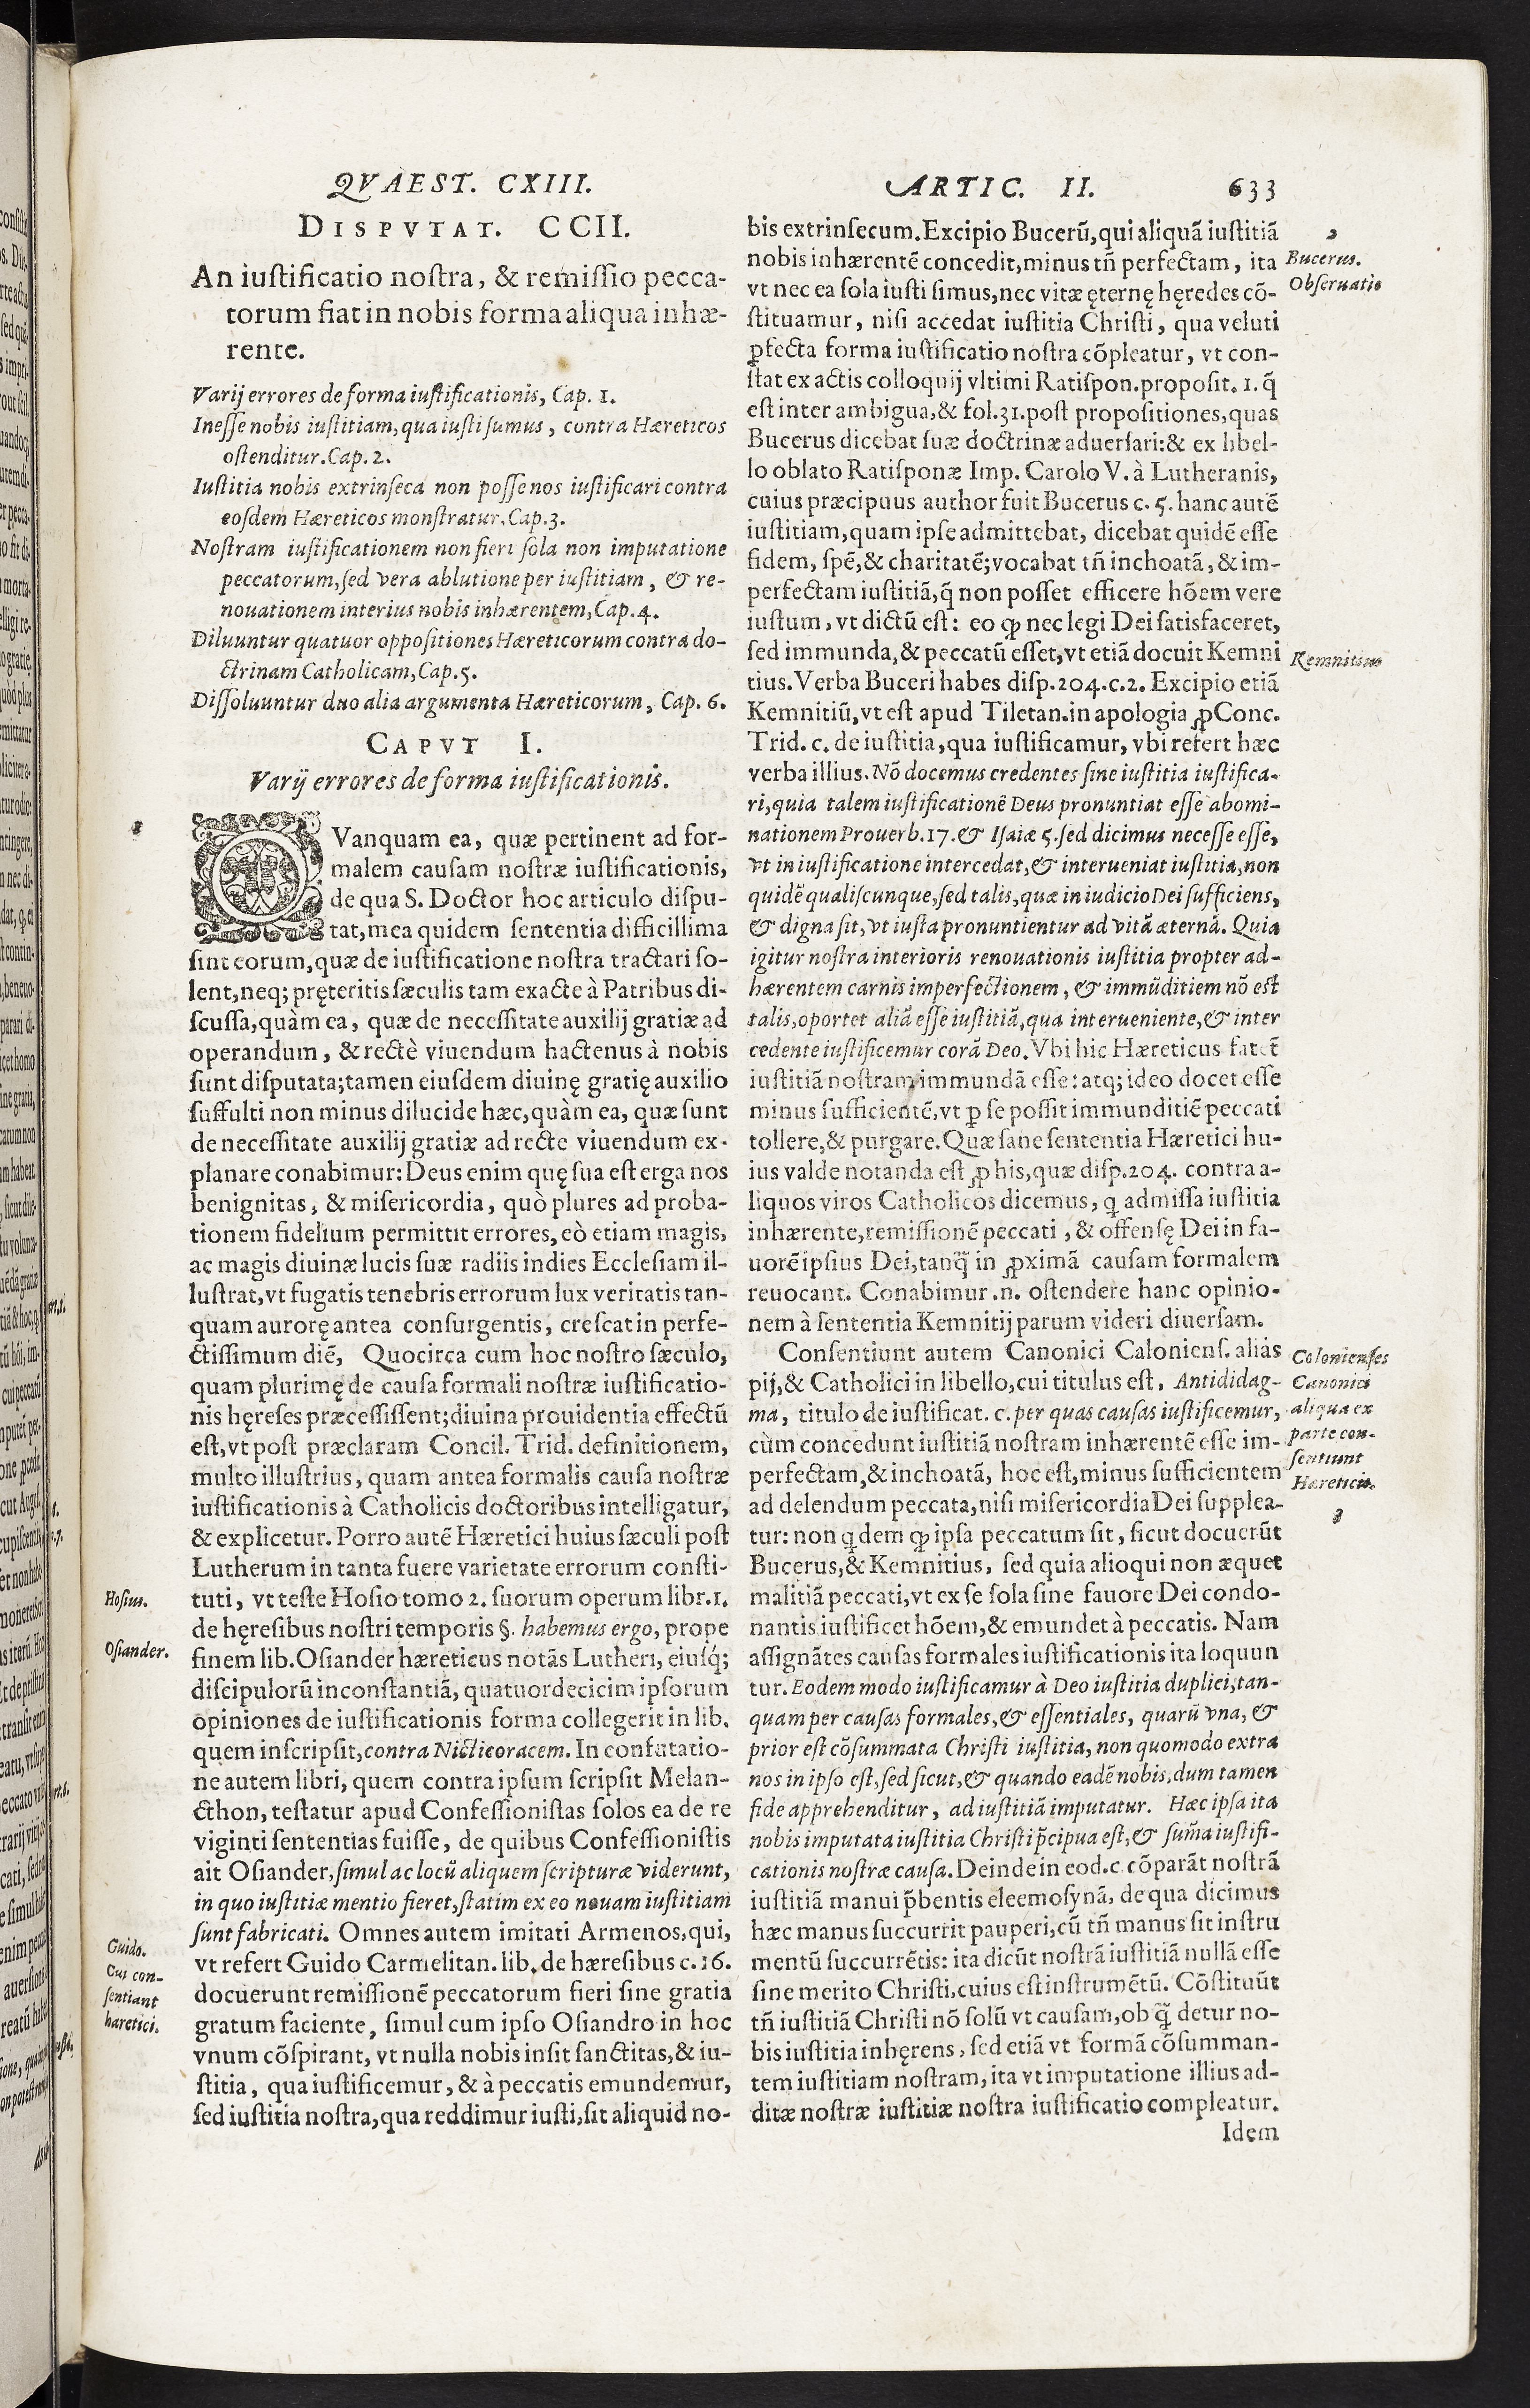 QVAEST. CXIII.
DISPVTAT. CCII.
An iustificatio nostra, & remissio pecca-
torum fiat in nobis forma aliqua inhæ-
rente.
Varij errores de forma iustificationis, Cap. 1.
Inesse nobis iustitiam, qua iusti sumus, contra Hæreticos
ostenditur. Cap. 2.
Iustitia nobis extrinseca non posse nos iustificari contra
eosdem Hæreticos monstratur. Cap. 3.
Nostram iustificationem non fieri sola non imputatione
peccatorum, sed vera ablutione per iustitiam, & re-
nouationem interius nobis inhærentem, Cap. 4.
Diluuntur quatuor oppositiones Hæreticorum contra do-
ctrinam Catholicam, Cap. 5.
Dissoluuntur duo alia argumenta Hæreticorum, Cap. 6.
CAPVT I.
Varij errores de forma iustificationis.
1
QVanquam ea, quæ pertinent ad for-
malem causam nostræ iustificationis,
de qua S. Doctor hoc articulo dispu-
tat, mea quidem sententia difficillima
sint eorum, quæ de iustificatione nostra tractari so-
lent, neq; pręteritis sæculis tam exacte à Patribus di-
scussa, quàm ea, quæ de necessitate auxilij gratiæ ad
operandum, & rectè viuendum hactenus à nobis
sunt disputata; tamen eiusdem diuinę gratię auxilio
suffulti non minus dilucide hæc, quàm ea, quæ sunt
de necessitate auxilij gratiæ ad recte viuendum ex-
planare conabimur: Deus enim quę sua est erga nos
benignitas, & misericordia, quò plures ad proba-
tionem fidelium permittit errores, eò etiam magis,
ac magis diuinæ lucis suæ radiis indies Ecclesiam il-
lustrat, vt fugatis tenebris errorum lux veritatis tan-
quam aurorę antea consurgentis, crescat in perfe-
ctissimum diē, Quocirca cum hoc nostro sæculo,
quam plurimę de causa formali nostræ iustificatio-
nis hęreses præcessissent; diuina prouidentia effectū
est, vt post præclaram Concil. Trid. definitionem,
multo illustrius, quam antea formalis causa nostræ
iustificationis à Catholicis doctoribus intelligatur,
& explicetur. Porro autē Hæretici huius sæculi post
Lutherum in tanta fuere varietate errorum consti-
Hosius.
tuti, vt teste Hosio tomo 2. suorum operum libr. 1.
de hęresibus nostri temporis §. habemus ergo, prope
Osiander.
finem lib. Osiander hæreticus notās Lutheri, eiusq́;
discipulorū inconstantiā, quatuordecicim ipsorum
opiniones de iustificationis forma collegerit in lib.
quem inscripsit, contra Nicticoracem. In confutatio-
ne autem libri, quem contra ipsum scripsit Melan-
cthon, testatur apud Confessionistas solos ea de re
viginti sententias fuisse, de quibus Confessionistis
ait Osiander, simul ac locū aliquem scripturæ viderunt,
in quo iustitiæ mentio fieret, statim ex eo nouam iustitiam
sunt fabricati. Omnes autem imitati Armenos, qui,
Guido.
Cui con-
sentiant
hæretici.
vt refert Guido Carmelitan. lib. de hæresibus c. 16.
docuerunt remissionē peccatorum fieri sine gratia
gratum faciente, simul cum ipso Osiandro in hoc
vnum cōspirant, vt nulla nobis insit sanctitas, & iu-
stitia, qua iustificemur, & à peccatis emundemur,
sed iustitia nostra, qua reddimur iusti, sit aliquid no-
ARTIC. II. 633
bis extrinsecum. Excipio Bucerū, qui aliquā iustitiā
2
Bucerus.
Obseruatio
nobis inhærentē concedit, minus tñ perfectam, ita
vt nec ea sola iusti simus, nec vitæ ęternę hęredes cō-
stituamur, nisi accedat iustitia Christi, qua veluti
ꝑfecta forma iustificatio nostra cōpleatur, vt con-
stat ex actis colloquij vltimi Ratispon. proposit. 1. q̃
est inter ambigua, & fol. 31. post propositiones, quas
Bucerus dicebat suæ doctrinæ aduersari: & ex libel-
lo oblato Ratisponæ Imp. Carolo V. à Lutheranis,
cuius præcipuus author fuit Bucerus c. 5. hanc autē
iustitiam, quam ipse admittebat, dicebat quidē esse
fidem, spē, & charitatē; vocabat tñ inchoatā, & im-
perfectam iustitiā, q̃ non posset efficere hōem vere
iustum, vt dictū est: eo ꝙ nec legi Dei satisfaceret,
sed immunda, & peccatū esset, vt etiā docuit Kemni
Kemnitius
tius. Verba Buceri habes disp. 204. c. 2. Excipio etiā
Kemnitiū, vt est apud Tiletan. in apologia ꝓ Conc.
Trid. c. de iustitia, qua iustificamur, vbi refert hæc
verba illius. Nō docemus credentes sine iustitia iustifica-
ri, quia talem iustificationē Deus pronuntiat esse abomi-
nationem Prouerb. 17. & Isaiæ 5. sed dicimus necesse esse,
vt in iustificatione intercedat, & interueniat iustitia, non
quidē qualiscunque, sed talis, quæ in iudicio Dei sufficiens,
& digna sit, vt iusta pronuntientur ad vitā æternā. Quia
igitur nostra interioris renouationis iustitia propter ad-
hærentem carnis imperfectionem, & immūditiem nō est
talis, oportet aliā esse iustitiā, qua interueniente, & inter
cedente iustificemur corā Deo. Vbi hic Hæreticus fatet̃
iustitiā nostram immundā esse: atq; ideo docet esse
minus sufficientē, vt ꝑ se possit immunditiē peccati
tollere, & purgare. Quæ sane sententia Hæretici hu-
ius valde notanda est ꝓ his, quæ disp. 204. contra a-
liquos viros Catholicos dicemus, q admissa iustitia
inhærente, remissionē peccati, & offensę Dei in fa-
uorē ipsius Dei, tanq̃ in ꝓximā causam formalem
reuocant. Conabimur .n. ostendere hanc opinio-
nem à sententia Kemnitij parum videri diuersam.
Consentiunt autem Canonici Caloniens. alias
Colonienses
Canonici
aliqua ex
parte con-
sentiunt
Hæreticis.
3
pij, & Catholici in libello, cui titulus est, Antididag-
ma, titulo de iustificat. c. per quas causas iustificemur,
cùm concedunt iustitiā nostram inhærentē esse im-
perfectam, & inchoatā, hoc est, minus sufficientem
ad delendum peccata, nisi misericordia Dei supplea-
tur: non qdem ꝙ ipsa peccatum sit, sicut docuerūt
Bucerus, & Kemnitius, sed quia alioqui non æquet
malitiā peccati, vt ex se sola sine fauore Dei condo-
nantis iustificet hōem, & emundet à peccatis. Nam
assignātes causas formales iustificationis ita loquun
tur. Eodem modo iustificamur à Deo iustitia duplici, tan-
quam per causas formales, & essentiales, quarū vna, &
prior est cōsummata Christi iustitia, non quomodo extra
nos in ipso est, sed sicut, & quando eadē nobis, dum tamen
fide apprehenditur, ad iustitiā imputatur. Hæc ipsa ita
nobis imputata iustitia Christi p̃cipua est, & sum̄a iustifi-
cationis nostræ causa. Deinde in eod. c cōparāt nostrā
iustitiā manui p̃bentis eleemosynā, de qua dicimus
hæc manus succurrit pauperi, cū tñ manus sit instru
mentū succurrētis: ita dicūt nostrā iustitiā nullā esse
sine merito Christi, cuius est instrumētū. Cōstituūt
tñ iustitiā Christi nō solū vt causam, ob q̃ detur no-
bis iustitia inhęrens, sed etiā vt formā cōsumman-
tem iustitiam nostram, ita vt imputatione illius ad-
ditæ nostræ iustitiæ nostra iustificatio compleatur.
Idem